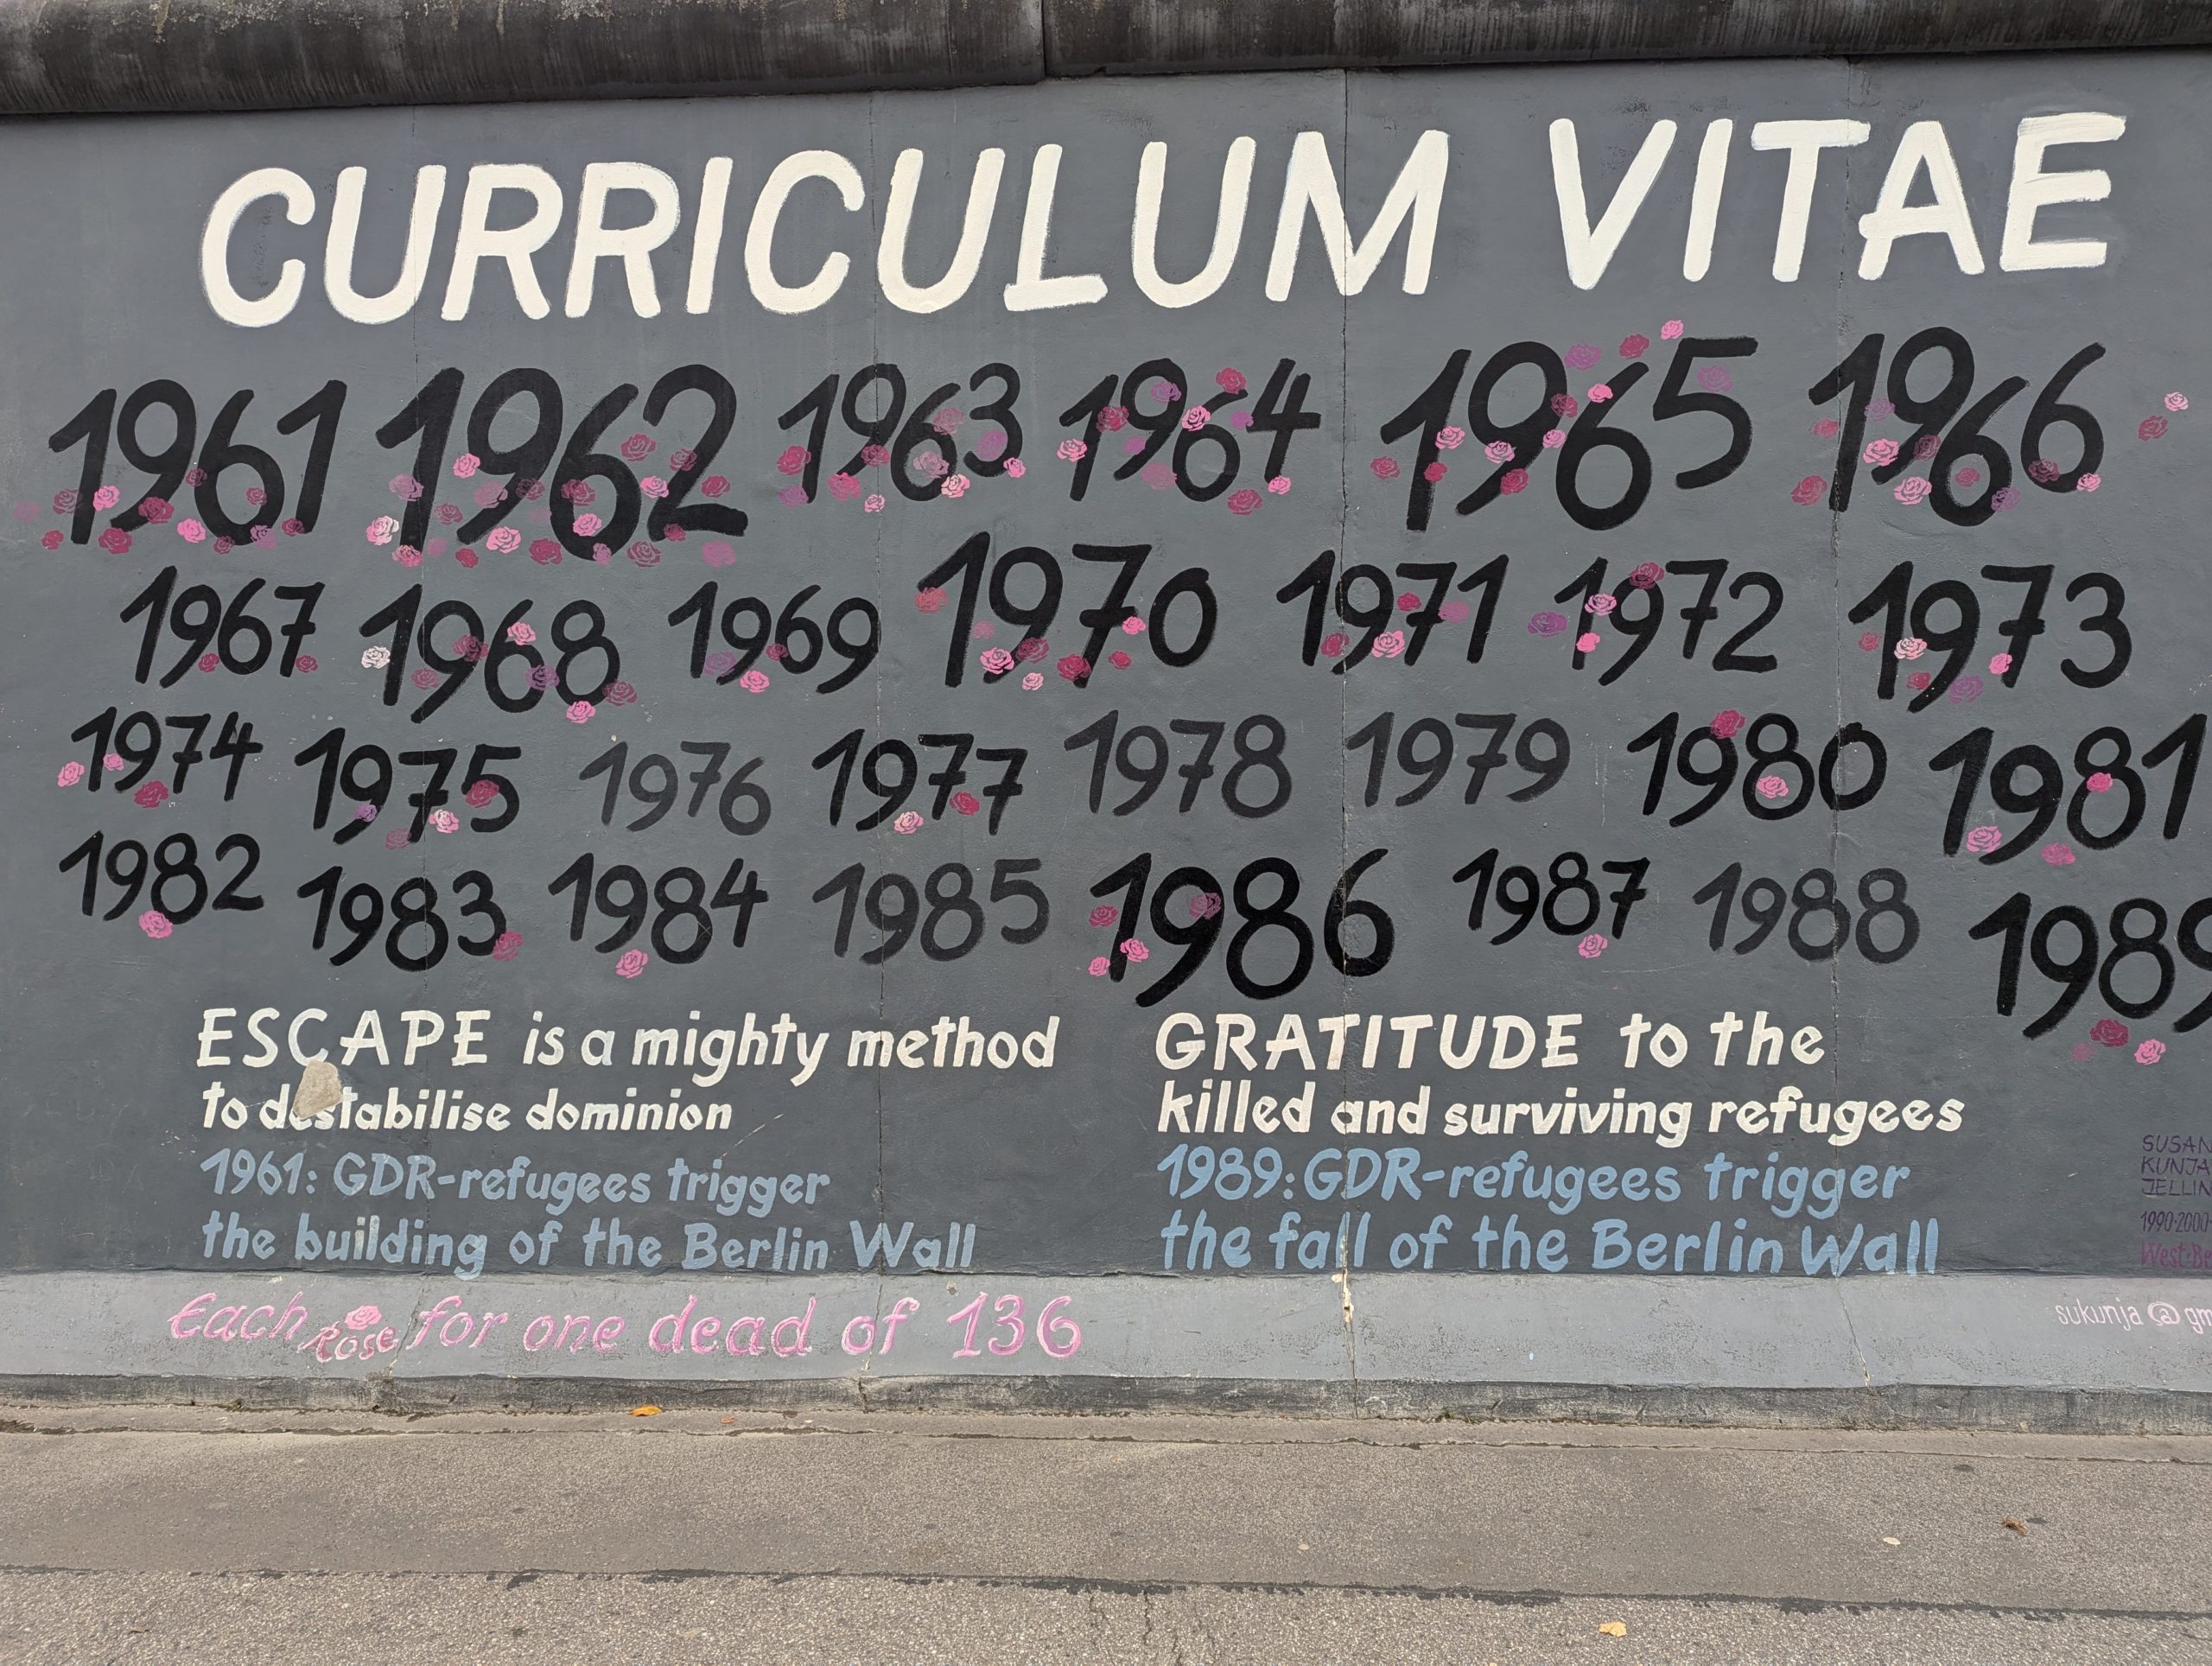 CURRICULUM VITAE
1961 1962 1963 1964 1965 1966
1967 1968 1969 1970 1971 1972 1973
1974 1975 1976 1977 1978 1979 1980 1981
1982 1983 1984 1985 1986 1987 1988 1989
ESCAPE is a mighty method
to destabilise dominion
1961: GDR-refugees trigger
the building of the Berlin Wall
GRATITUDE to the
killed and surviving refugees
1989: GDR-refugees trigger
the fall of the Berlin Wall
SUSAN
KUNJA
JELLIN
1990-2000-
West-Be
sukunja @ gm
Each Rose for one dead of 136